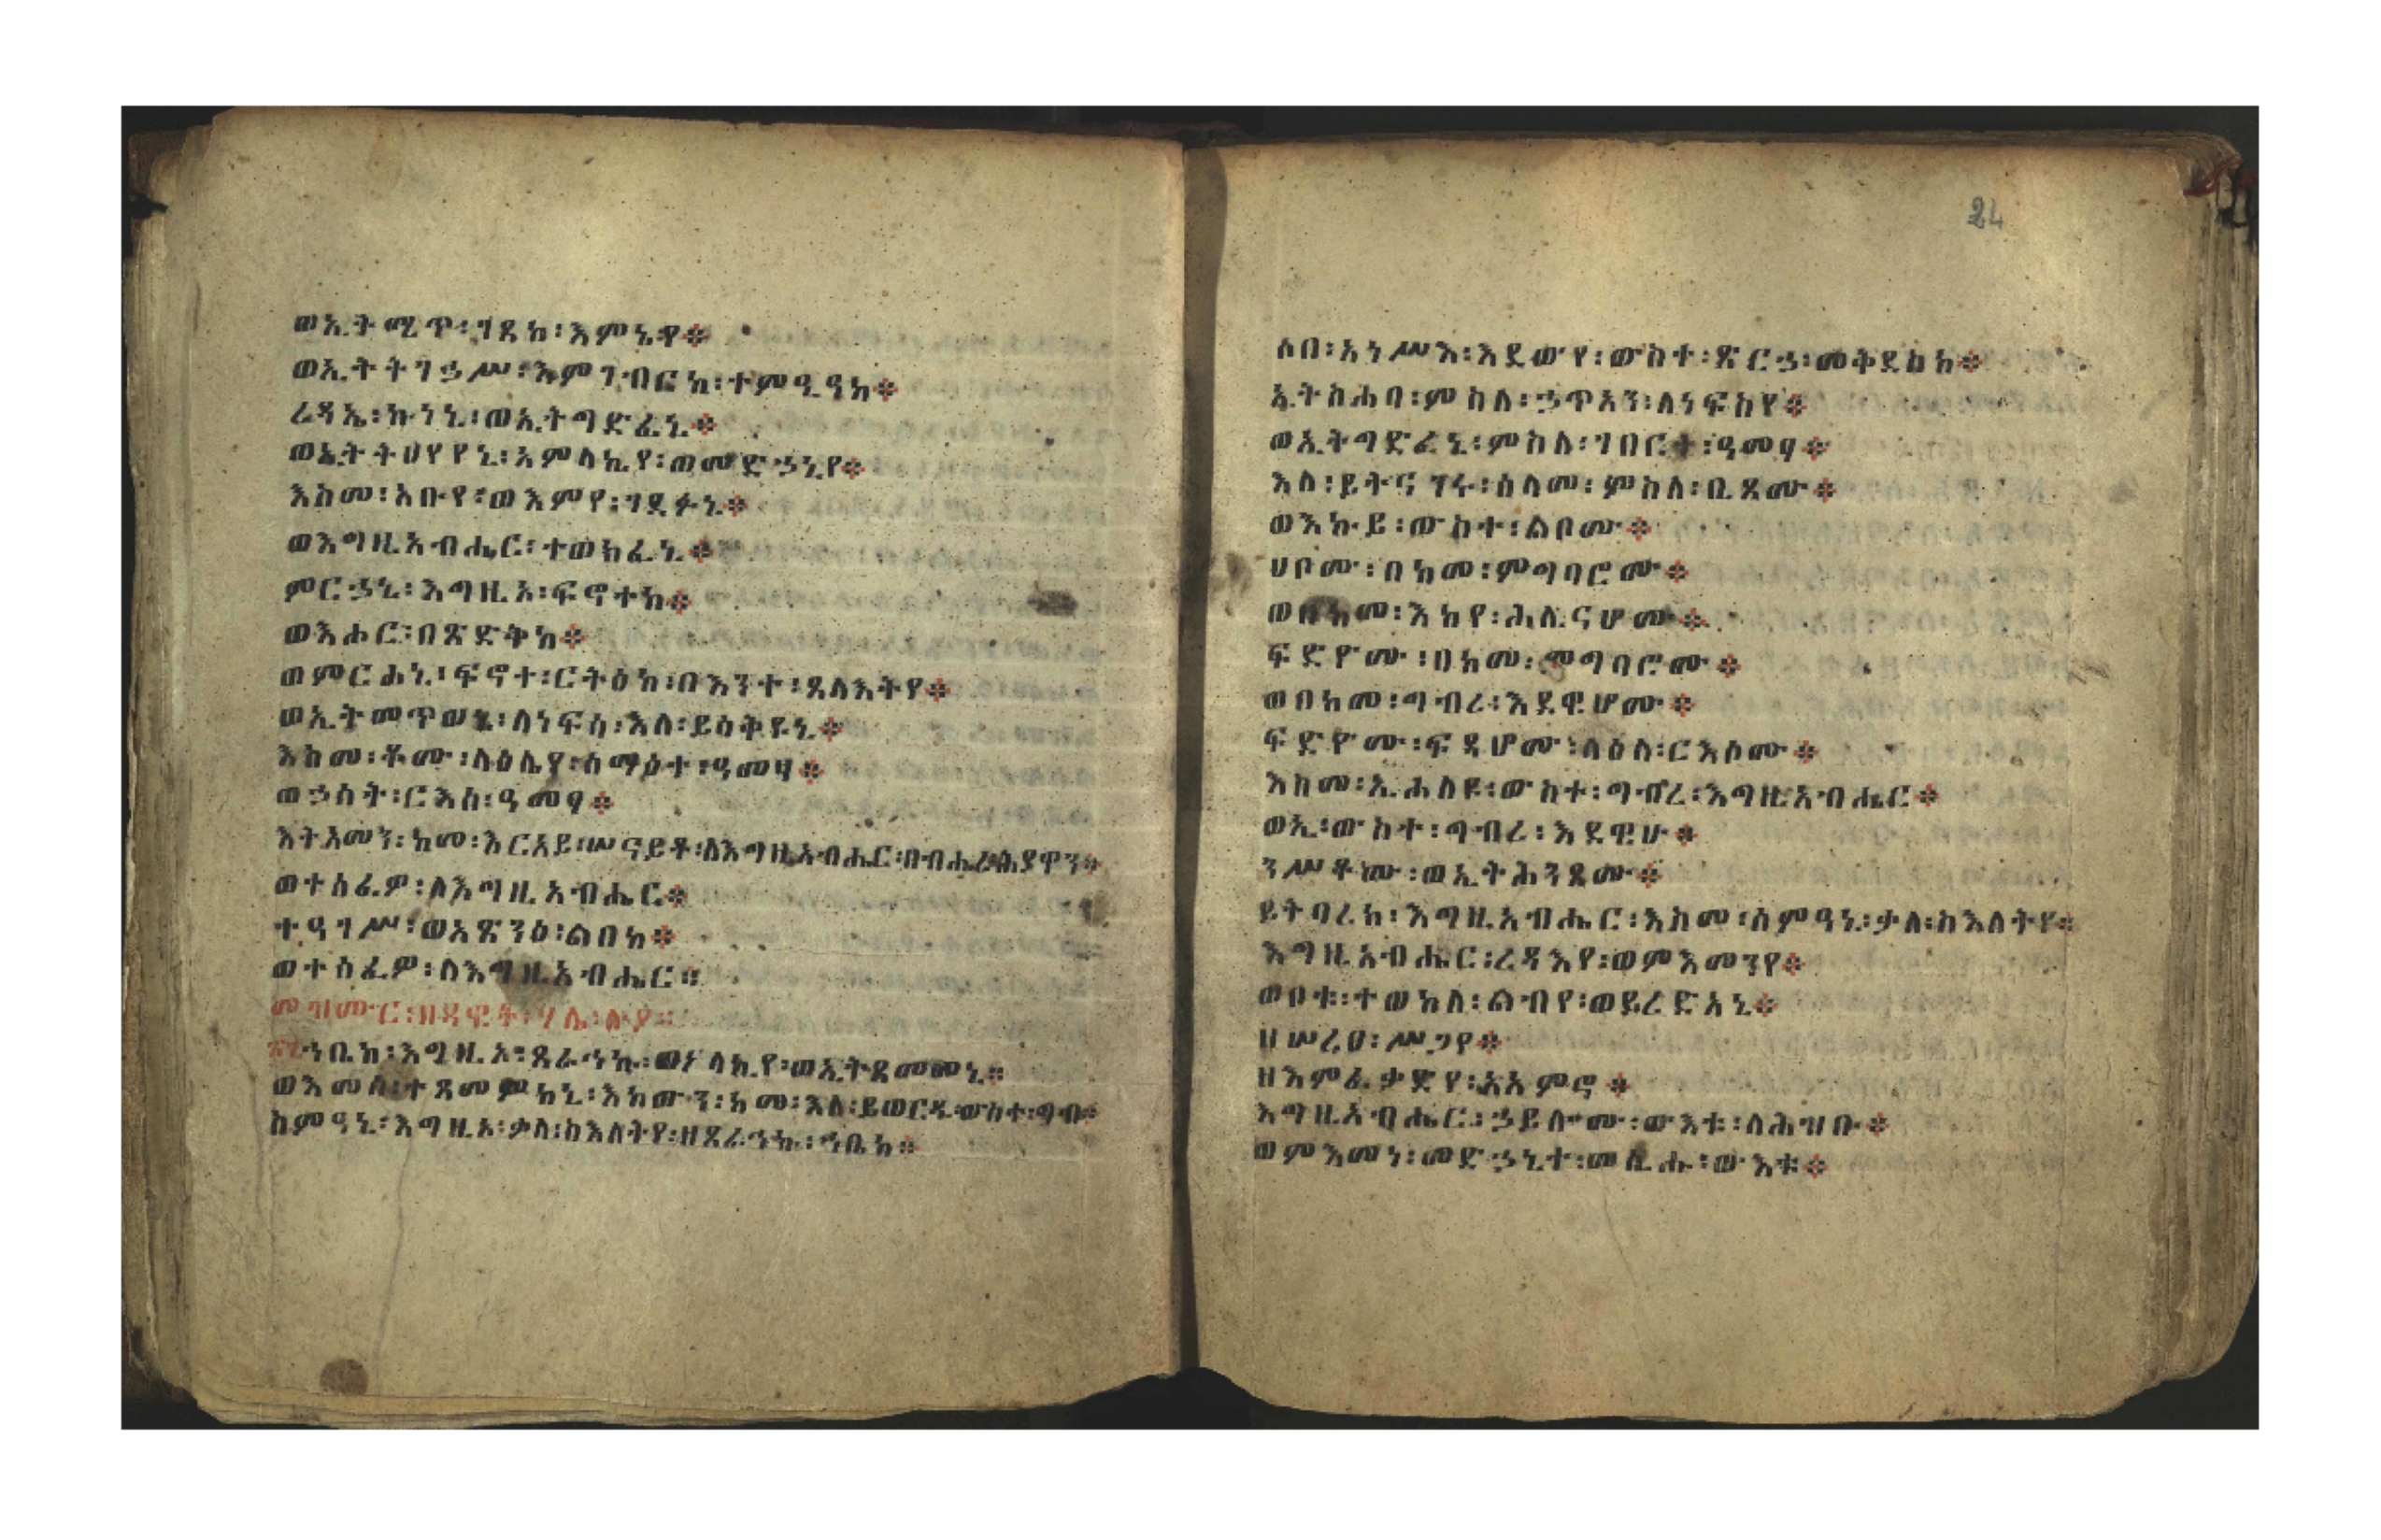 ወኢትሚጥ፡ገጸከ፡እምኔየ።
ወኢትትገኃሥ፡እምገብርከ፡ተምዒዓከ።
ረዳኤ፡ኩነኒ፡ወኢትግድፈኒ።
ወኢትትሀየየኒ፡አምላኪየ፡ወመድኃኒየ።
እስመ፡አቡየ፡ወእምየ፡ገደፉኒ።
ወእግዚአብሔር፡ተወክፈኒ።
ምርኃኒ፡እግዚኦ፡ፍኖተከ።
ወእሑር፡በጽድቅከ።
ወምርሐኒ፡ፍኖተ፡ርትዕከ፡በእንተ፡ጸላእትየ።
ወኢትመጥወኒ፡ለነፍሰ፡እለ፡ይዕቅዩኒ።
እስመ፡ቆሙ፡ላዕሌየ፡ሰማዕተ፡ዓመፃ።
ወኃሰት፡ርእሰ፡ዓመፃ።
እትአመን፡ከመ፡እርአይ፡ሠናይቶ፡ለእግዚአብሔር፡በብሔረ፡ሕያዋን።
ወተሰፈዎ፡ለእግዚአብሔር።
ተዓገሥ፡ወአጽንዕ፡ልበከ።
ወተሰፈዎ፡ለእግዚአብሔር።
መዝሙር፡ዘዳዊት፡
፳፯ኀቤከ፡እግዚኦ፡ጸራኅኩ፡ወኢትጸመመኒ።
ወእመሰ፡ተጸመምከኒ፡እከውን፡ከመ፡እለ፡ይወርዱ፡ውስተ፡ግብ።
ስምዓኒ፡እግዚኦ፡ቃለ፡ስእለትየ፡ዘጸራኅኩ፡ኀቤከ።
24
ሶበ፡አነሥእ፡እደውየ፡ውስተ፡ጽርኃ፡መቅደስከ።
ኢትስሐባ፡ምስለ፡ኃጥአን፡ለነፍስየ።
ወኢትግድፈኒ፡ምስለ፡ገበርተ፡ዓመፃ።
እለ፡ይትናገሩ፡ሰላመ፡ምስለ፡ቢጾሙ።
ወእኩይ፡ውስተ፡ልቦሙ።
ሀቦሙ፡በከመ፡ምግባሮሙ።
ወበከመ፡እከየ፡ሕሊናሆሙ።
ፍድዮሙ፡በከመ፡ምግባሮሙ።
ወበከመ፡ግብረ፡እደዊሆሙ።
ፍድዮሙ፡ፍዳሆሙ፡ላዕለ፡ርእሶሙ።
እስመ፡ኢሐለዩ፡ውስተ፡ግብረ፡እግዚአብሔር።
ወኢ፡ውስተ፡ግብረ፡እደዊሁ።
ንሥቶሙ፡ወኢትሕንጾሙ።
ይትባረክ፡እግዚአብሔር፡እስመ፡ሰምዓኒ፡ቃለ፡ስእለትየ።
እግዚአብሔር፡ረዳእየ፡ወምእመንየ።
ወቦቱ፡ተወከለ፡ልብየ፡ወይረድአኒ።
ዘሠረፀ፡ሥጋየ።
ዘእምፈቃድየ፡አአምኖ።
እግዚአብሔር፡ኃይሎሙ፡ውእቱ፡ለሕዝቡ።
ወምእመነ፡መድኃኒተ፡መሲሑ፡ውእቱ።